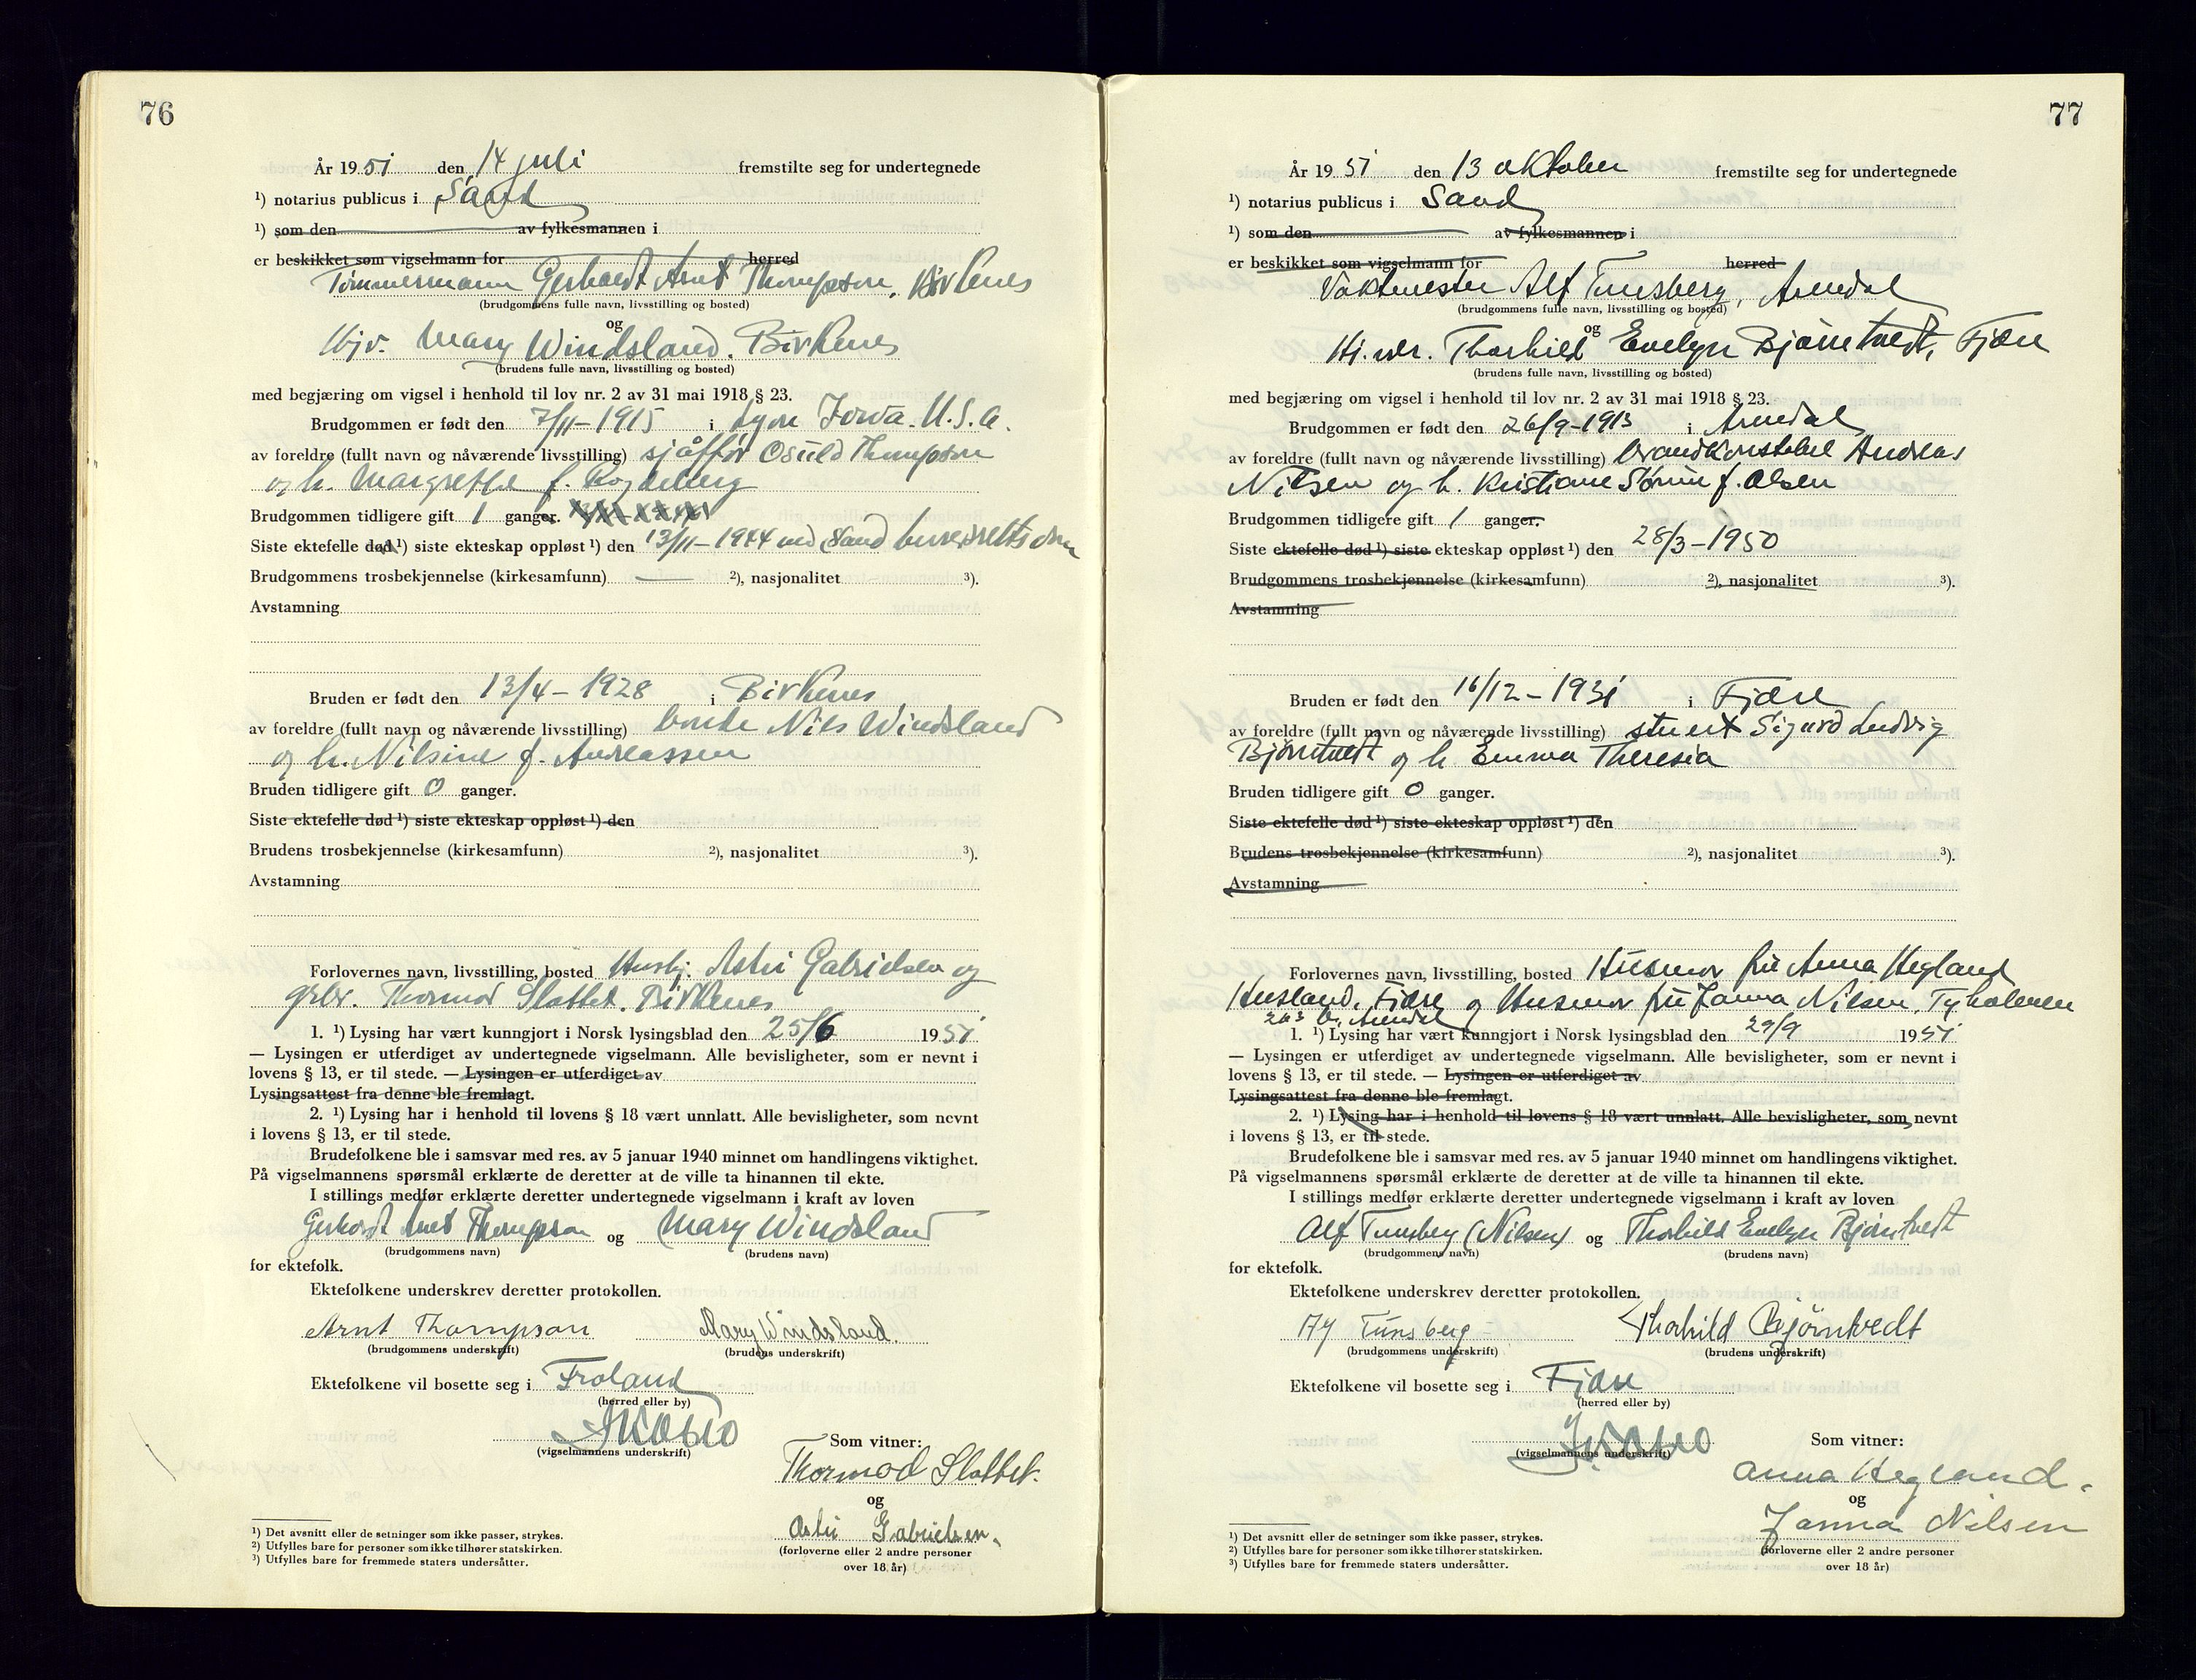 76
År 1951 den 14 juli fremstilte seg for undertegnede
¹) notarius publicus i Sand
¹) som den av fylkesmannen i
er beskikket som vigselmann for herred
Tømmermann Gerhardt Arnt Thompson, Birkenes
(brudgommens fulle navn, livsstilling og bosted)
og
Hjv. Mary Windsland. Birkenes
(brudens fulle navn, livsstilling og bosted)
med begjæring om vigsel i henhold til lov nr. 2 av 31 mai 1918 § 23.
Brudgommen er født den 7/11-1915 i Iowa. U.S.A.
av foreldre (fullt navn og nåværende livsstilling) sjåffør Osuld Thompson
og h. Margrethe f.
Brudgommen tidligere gift 1 ganger.
Siste ektefelle død ¹) siste ekteskap oppløst ¹) den 13/11-1944 ved Sand herredsrettsdom
Brudgommens trosbekjennelse (kirkesamfunn) ²), nasjonalitet ³).
Avstamning
Bruden er født den 13/4-1928 i Birkenes
av foreldre (fullt navn og nåværende livsstilling) bonde Nils Windsland
og h. Nilsine f. Andreassen
Bruden tidligere gift 0 ganger.
Siste ektefelle død ¹) siste ekteskap oppløst ¹) den
Brudens trosbekjennelse (kirkesamfunn) ²), nasjonalitet ³).
Avstamning
Forlovernes navn, livsstilling, bosted Husbj. Astri Gabrielsen og
grbr. Thormod Slottet. Birkenes
1. ¹) Lysing har vært kunngjort i Norsk lysingsblad den 25/6 1951
— Lysingen er utferdiget av undertegnede vigselmann. Alle bevisligheter, som er nevnt i
lovens § 13, er til stede. — Lysingen er utferdiget av
Lysingsattest fra denne ble fremlagt.
2. ¹) Lysing har i henhold til lovens § 18 vært unnlatt. Alle bevisligheter, som nevnt
i lovens § 13, er til stede.
Brudefolkene ble i samsvar med res. av 5 januar 1940 minnet om handlingens viktighet.
På vigselmannens spørsmål erklærte de deretter at de ville ta hinannen til ekte.
I stillings medfør erklærte deretter undertegnede vigselmann i kraft av loven
Gerhardt Arnt Thompson og Mary Windsland
(brudgommens navn) (brudens navn)
for ektefolk.
Ektefolkene underskrev deretter protokollen.
Arnt Thompson Mary Windsland.
(brudgommens underskrift) (brudens underskrift)
Ektefolkene vil bosette seg i Froland
(herred eller by)
(vigselmannens underskrift)
Som vitner:
Thormod Slottet.
og
Astri Gabrielsen.
(forloverne eller 2 andre personer
over 18 år)
¹) Det avsnitt eller de setninger som ikke passer, strykes.
²) Utfylles bare for personer som ikke tilhører statskirken.
³) Utfylles bare for fremmede staters undersåtter.
77
År 1951 den 13 oktober fremstilte seg for undertegnede
¹) notarius publicus i Sand
¹) som den av fylkesmannen i
er beskikket som vigselmann for herred
Vaktmester Alf Tunsberg, Arendal
(brudgommens fulle navn, livsstilling og bosted)
og
Hj. vær. Thorhild Evelyn Bjørntvedt, Fjære
(brudens fulle navn, livsstilling og bosted)
med begjæring om vigsel i henhold til lov nr. 2 av 31 mai 1918 § 23.
Brudgommen er født den 26/9-1913 i Arendal
av foreldre (fullt navn og nåværende livsstilling) brandkonstabel Andreas
Nilsen og h. Kristiane Sørine f. Olsen
Brudgommen tidligere gift 1 ganger.
Siste ektefelle død ¹) siste ekteskap oppløst ¹) den 28/3-1950
Brudgommens trosbekjennelse (kirkesamfunn) ²), nasjonalitet ³).
Avstamning
Bruden er født den 16/12-1931 i Fjære
av foreldre (fullt navn og nåværende livsstilling) stuert Sigurd Ludvig
Bjørntvedt og h. Emma Theresia
Bruden tidligere gift 0 ganger.
Siste ektefelle død ¹) siste ekteskap oppløst ¹) den
Brudens trosbekjennelse (kirkesamfunn) ²), nasjonalitet ³).
Avstamning
Forlovernes navn, livsstilling, bosted Husmor fru Anna Hegland
Husland, Fjære og Husmor fru Janna Nilsen, Tyholmen
Arendal
1. ¹) Lysing har vært kunngjort i Norsk lysingsblad den 29/9 1951
— Lysingen er utferdiget av undertegnede vigselmann. Alle bevisligheter, som er nevnt i
lovens § 13, er til stede. — Lysingen er utferdiget av
Lysingsattest fra denne ble fremlagt.
2. ¹) Lysing har i henhold til lovens § 18 vært unnlatt. Alle bevisligheter, som nevnt
i lovens § 13, er til stede.
Brudefolkene ble i samsvar med res. av 5 januar 1940 minnet om handlingens viktighet.
På vigselmannens spørsmål erklærte de deretter at de ville ta hinannen til ekte.
I stillings medfør erklærte deretter undertegnede vigselmann i kraft av loven
Alf Tunsberg (Nilsen) og Thorhild Evelyn Bjørntvedt
(brudgommens navn) (brudens navn)
for ektefolk.
Ektefolkene underskrev deretter protokollen.
Alf Tunsberg Thorhild Bjørntvedt
(brudgommens underskrift) (brudens underskrift)
Ektefolkene vil bosette seg i Fjære
(herred eller by)
(vigselmannens underskrift)
Som vitner:
Anna Hegland.
og
Janna Nilsen
(forloverne eller 2 andre personer
over 18 år)
¹) Det avsnitt eller de setninger som ikke passer, strykes.
²) Utfylles bare for personer som ikke tilhører statskirken.
³) Utfylles bare for fremmede staters undersåtter.